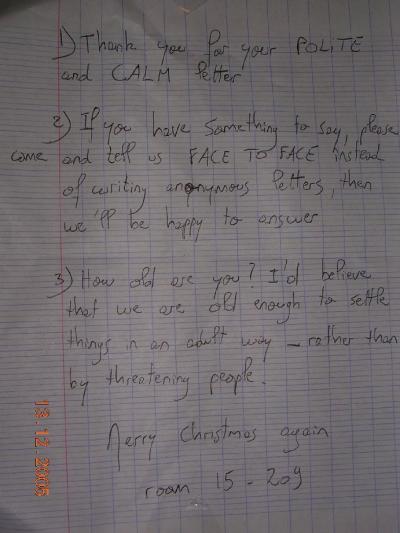 1) Thank you for your POLITE
and CALM letter
2) If you have something to say, please
come and tell us FACE TO FACE instead
of writing anonymous letters, then
we'll be happy to answer
3) How old are you? I'd believe
that we are old enough to settle
things in an adult way - rather than
by threatening people.
Merry Christmas again
room 15 - 209
13.12.2005